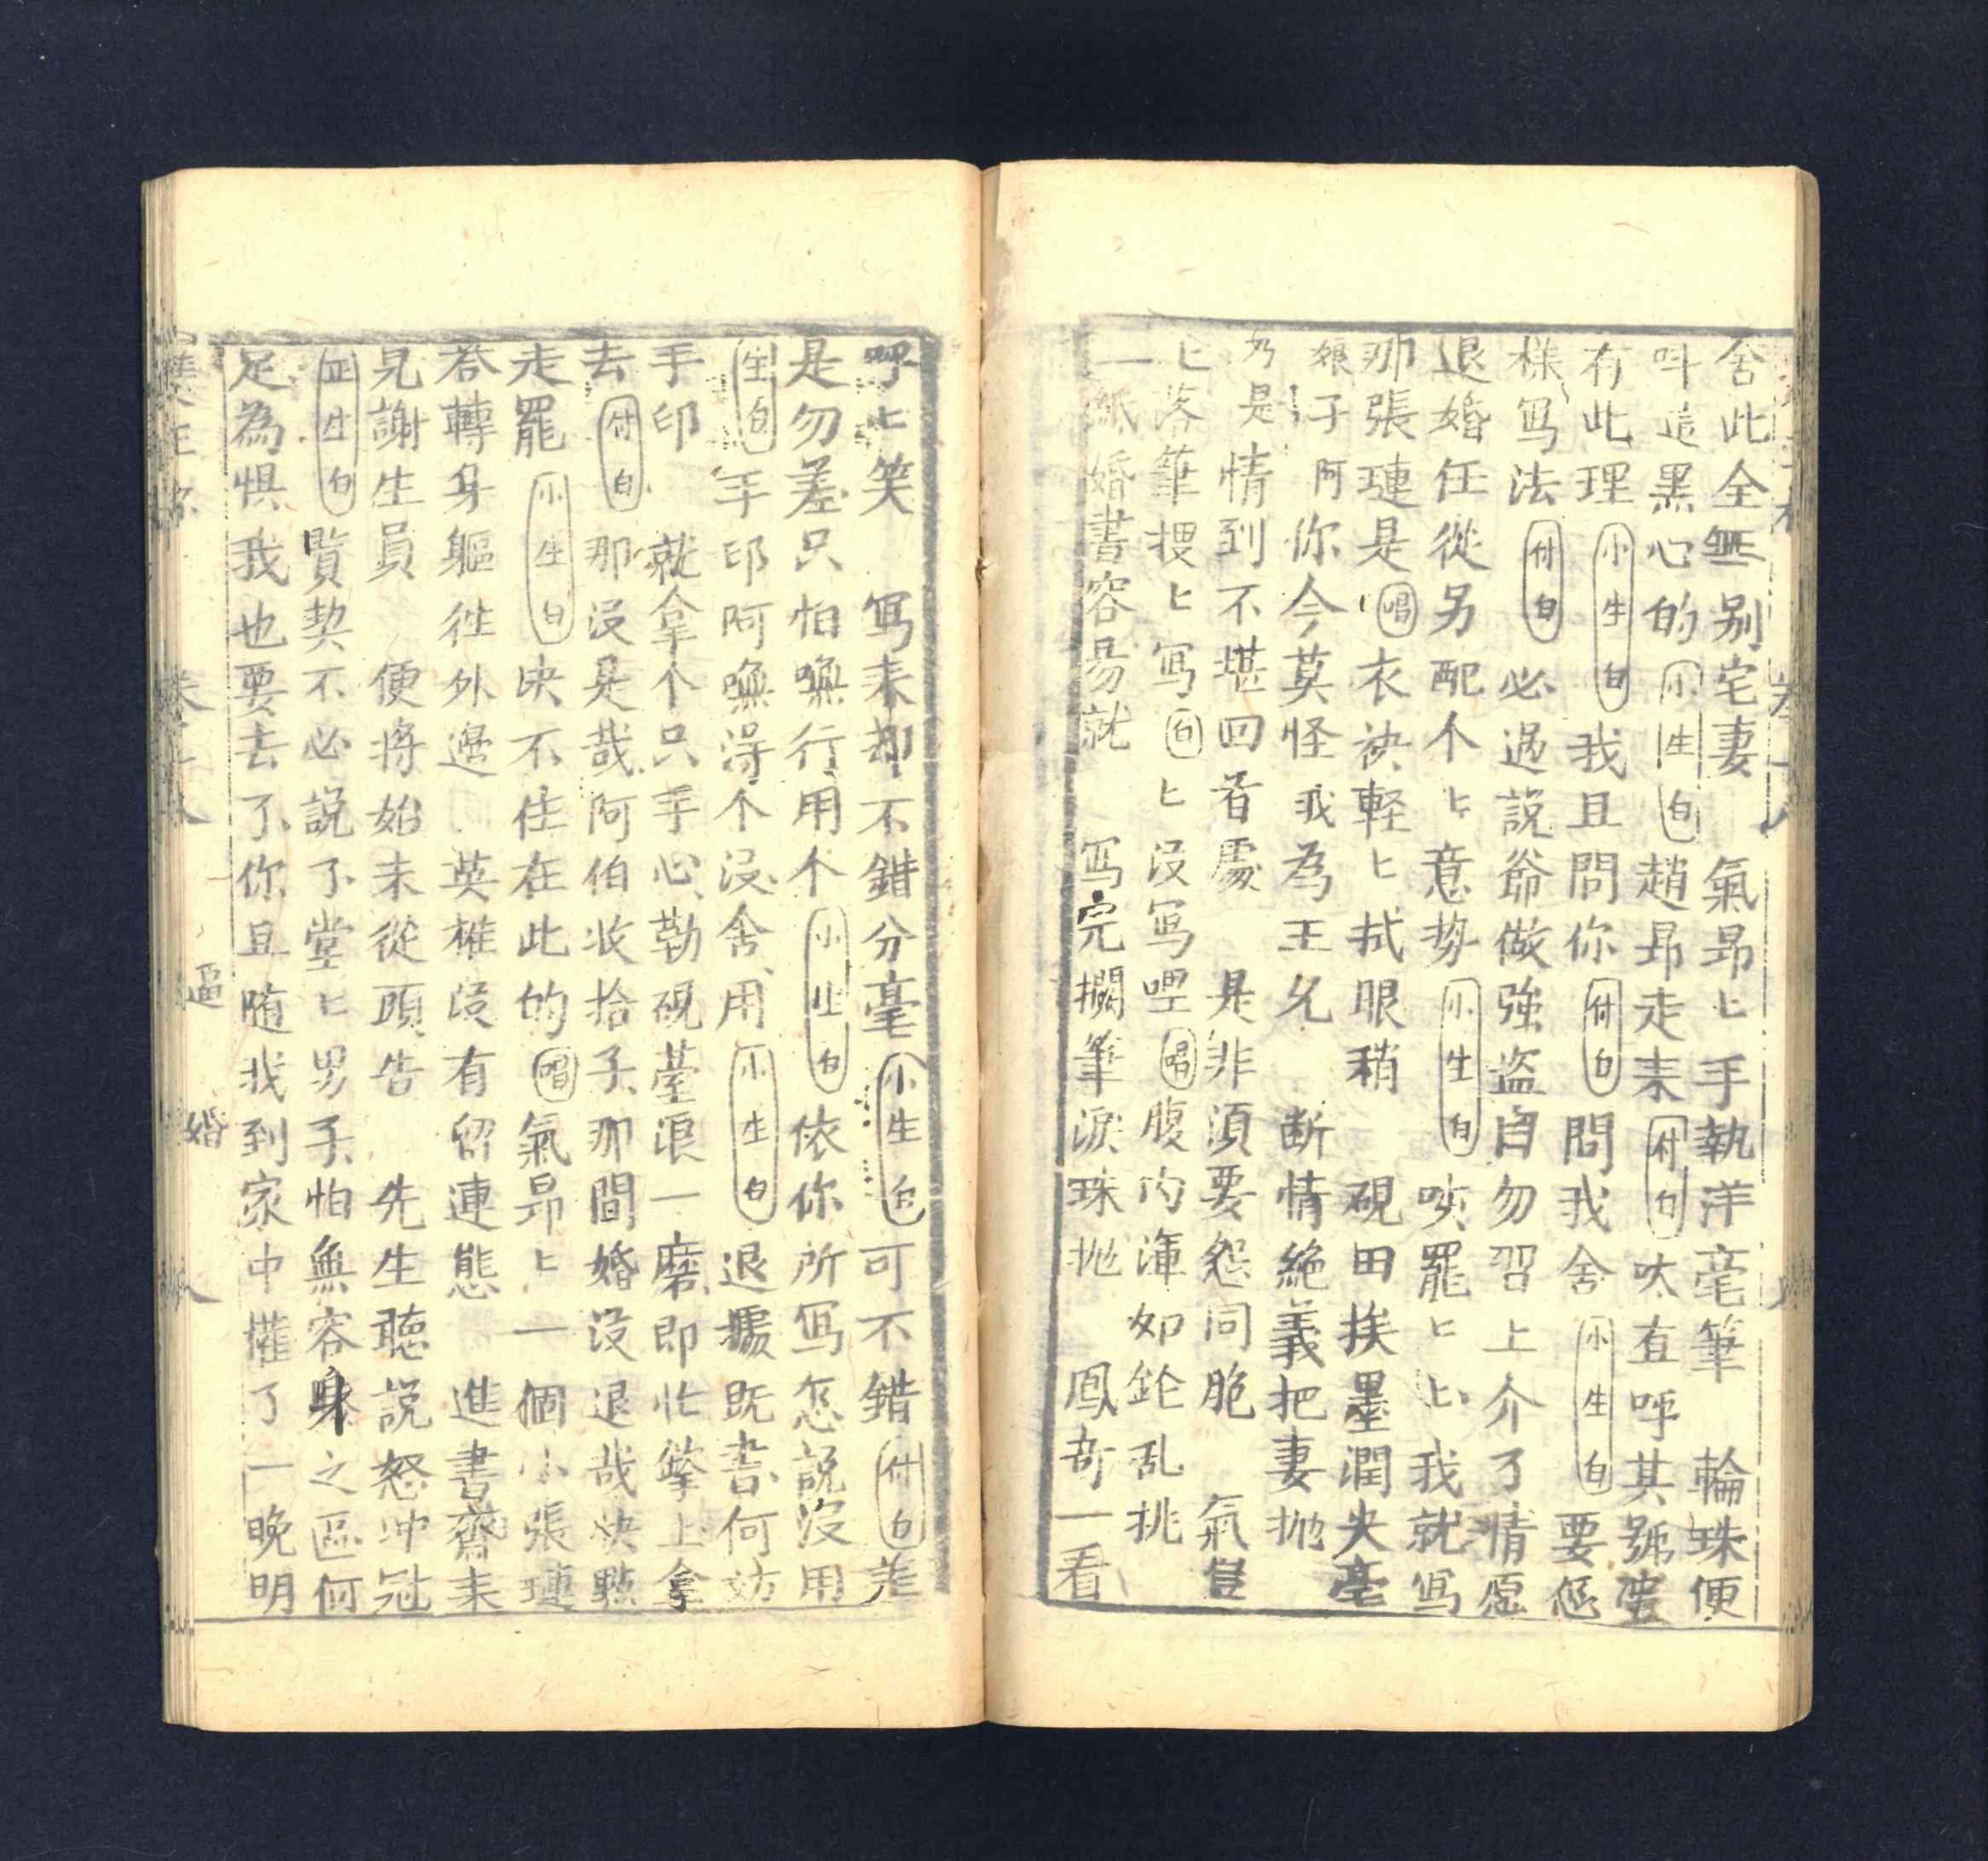 舍此全無别宅妻　氣昂〻手執洋毫筆　輪珠便
呌這黑心的小生白趙昻走来付白呔直呼其號
有此理小生白我且問你付白問我舍小生白要
樣写法付白必過説爺做強盗自勿招上介了情愿
退婚任從另配个〻意势小生白唉罷〻〻我就写
那張璉是唱衣袂輕〻拭眼稍　硯田挨墨潤尖毫
娘子阿你今莫怪我為王允　断情絶義把妻抛
乃是情到不堪回首處　是非須要怨同胞　氣
〻落筆擾〻写白〻没写哩唱腹内渾如錀乱挑
一紙婚書容易就　写完擱筆淚珠抛　鳳音一看
呼〻笑　写来却不錯分毫小生白可不錯付白差
是勿差只怕嘸行用个小生白依你所写怎説没用
生白手印阿嘸得个没舍用小生白退據既書何妨
手印　就拿个只手心勒硯臺浪一磨即忙擎上拿
去付白那没是哉阿伯收拾子那間婚没退哉快點
走罷小生白决不住在此的唱氣昂〻一個小張璉
吞轉身軀徃外邊　英雄没有留連態　進書齋来
見謝生員　便將始末從頭告　先生聽説怒冲冠
正生白賢契不必説了堂〻男子怕無容身之區何
足為惧我也要去了你且随我到家中權了一晚明
逼婚